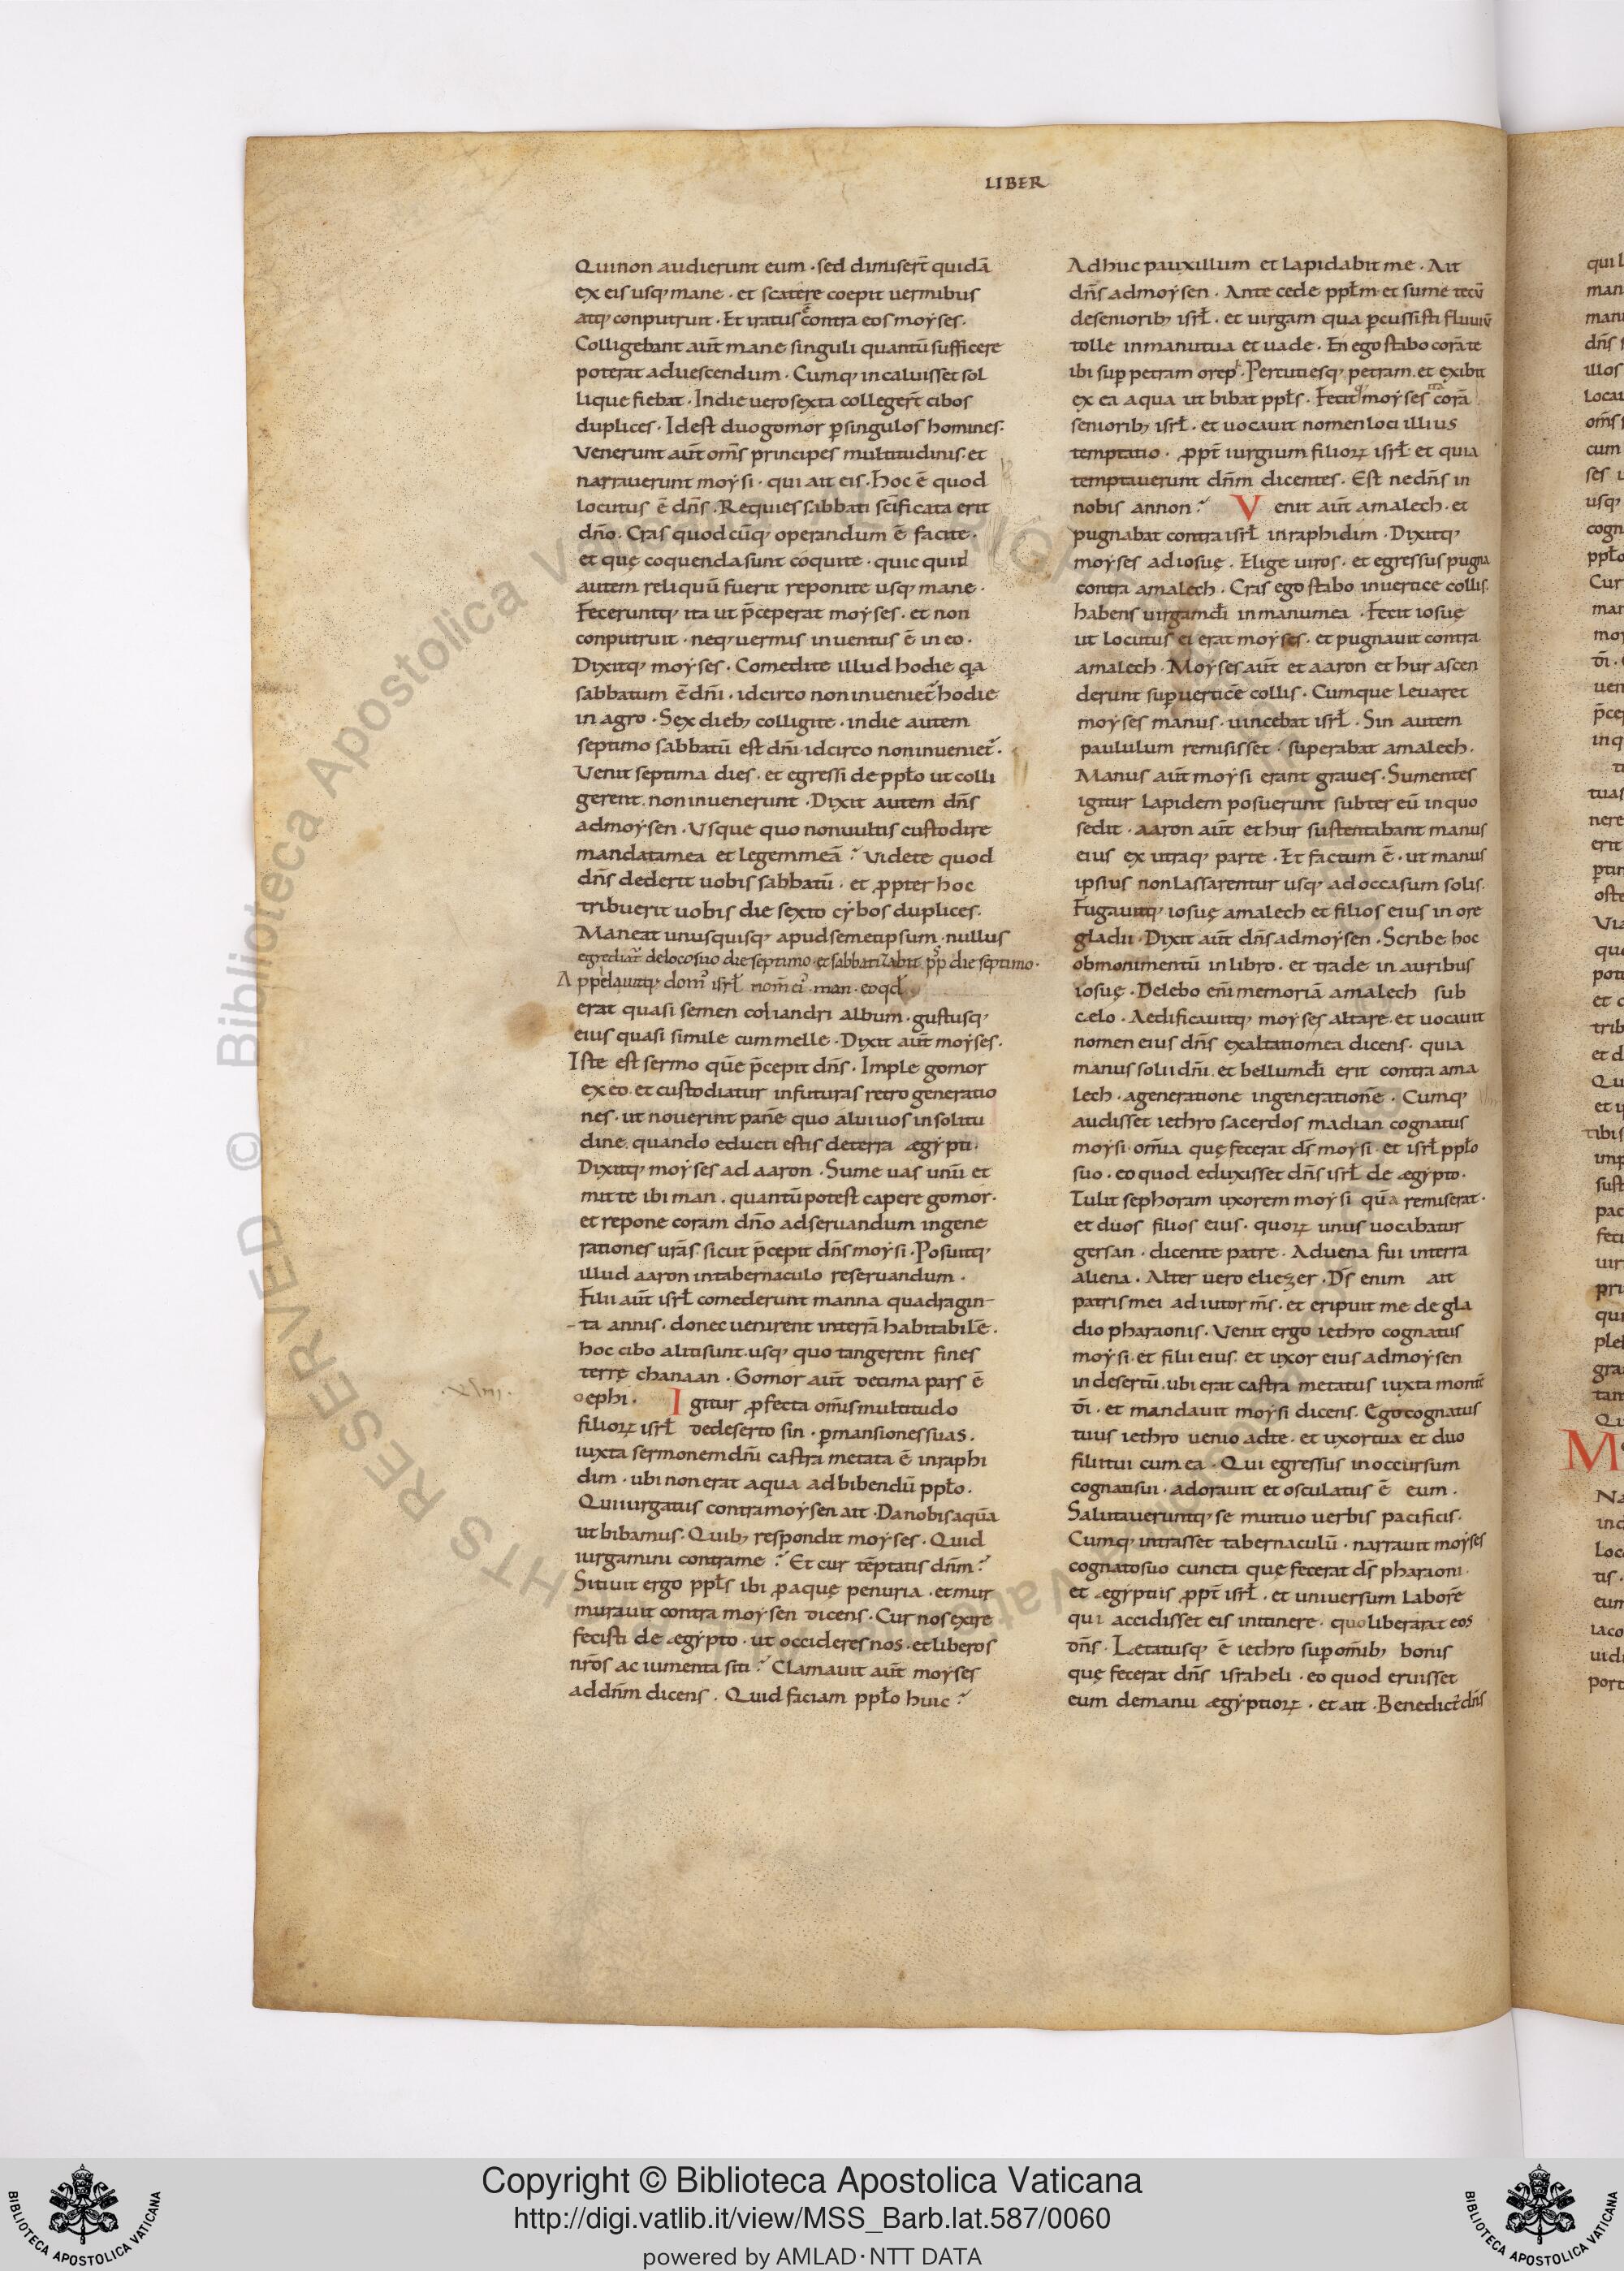 LIBER
Quinon audierunt eum · sed dimisert̄ quidā
ex eis usq; mane · et scatere coepit uermibus
atq; conputruit · Et iratus ē contra eos moyses ·
Colligebant aut̄ mane singuli quantū sufficere
poterat aduescendum · Cumq; incaluisset sol
lique fiebat · Indie uero sexta collegert̄ cibos
duplices · Idest duo gomor ꝑ singulos homines ·
Venerunt aut̄ om̄s principes multitudinis · et
narrauerunt moysi · qui ait eis · Hoc ē quod
locutus ē dn̄s · Requies sabbati sc̄ificata erit
dn̄o · Cras quodcūq; operandum ē facite ·
et quę coquenda sunt coquite · quic quid
autem reliquū fuerit reponite usq; mane ·
Feceruntq; ita ut p̄ceperat moyses · et non
conputruit · neq; uermis inuentus ē in eo ·
Dixitq; moyses · Comedite illud hodie qa
sabbatum ē dn̄i · idcirco non inueniet̄ hodie
in agro · Sex dieb; colligite · indie autem
septimo sabbatū est dn̄i · idcirco noninueniet̄ ·
Venit septima dies · et egressi de ppło ut colli
gerent · non inuenerunt · Dixit autem dn̄s
admoysen · Vsque quo nonuultis custodire
mandatamea et legemmeā ? Videte quod
dn̄s dederit uobis sabbatū · et ꝓpter hoc
tribuerit uobis die sexto cybos duplices ·
Maneat unusquisq; apudsemetipsum · nullus
egrediat̄ delocosuo die septimo · et sabbatizabit pp̄ die septimo ·
Appelauitq; dom᾽ isrł nom̄ ei᾽ man · eo qd̄
erat quasi semen coliandri album · gustusq;
eius quasi simile cum melle · Dixit aut̄ moyses ·
Iste est sermo quē p̄cepit dn̄s · Imple gomor
ex eo · et custodiatur infuturas retro generatio
nes · ut nouerint panē quo alui uos insolitu
dine · quando educti estis deterra ægypti ·
Dixitq; moyses ad aaron · Sume uas unū et
mitte ibi man · quantū potest capere gomor ·
et repone coram dn̄o adseruandum ingene
rationes ur̄as · sicut p̄cepit dn̄s moysi · Posuitq;
illud aaron intabernaculo reseruandum ·
Filii aut̄ isrł comederunt manna quadragin-
-ta annis · donec uenirent interrā habitabilē ·
hoc cibo aliti sunt · usq; quo tangerent fines
terrę chanaan · Gomor aut̄ decima pars ē
oephi · Igitur ꝓfecta om̄is multitudo
filioꝝ isrł dedeserto sin · ꝑ mansiones suas ·
iuxta sermonem dn̄i castra metata ē inraphi
dim · ubi non erat aqua adbibendū ppło ·
Qui iurgatus contra moysen ait · Da nobis aquā
ut bibamus · Quib; respondit moyses · Quid
iurgamini contrame ? Et cur tēptatis dn̄m ?
Sitiuit ergo ppłs ibi ꝓ aquę penuria · et mur
murauit contra moysen dicens · Cur nos exire
fecisti de ægypto · ut occideres nos · et liberos
nr̄os ac iumenta siti ? Clamauit aut̄ moyses
ad dn̄m dicens · Quid faciam ppło huic ?
Adhuc pauxillum et lapidabit me · Ait
dn̄s admoysen · Ante cede ppłm · et sume tecū
desenioribus isrł · et uirgam qua ꝑcussisti fluuiū
tolle inmanutua et uade · En ego stabo corā te
ibi sup̄ petram orep · Percutiesq; petram · et exibit
ex ea aqua ut bibat ppłs · Fecitq; moyses ita corā
seniorib; isrł · et uocauit nomen loci illius
temptatio · ꝓpt̄ iurgium filioꝝ isrł et quia
temptauerunt dn̄m dicentes · Est nedn̄s in
nobis annon ? Venit aut̄ amalech · et
pugnabat contra isrł inraphidim · Dixitq;
moyses adiosuę · Elige uiros · et egressus pugna
contra amalech · Cras ego stabo inuertice collis ·
habens uirgam dī inmanumea · Fecit iosuę
ut locutus ei erat moyses · et pugnauit contra
amalech · Moyses aut̄ et aaron et hur ascen
derunt sup̄ uerticē collis · Cumque leuaret
moyses manus · uincebat isrł · Sin autem
paululum remisisset · superabat amalech ·
Manus aut̄ moysi erant graues · Sumentes
igitur lapidem posuerunt subter eū inquo
sedit · aaron aut̄ et hur sustentabant manus
eius ex utraq; parte · Et factum ē · ut manus
ipsius nonlassarentur usq; adoccasum solis ·
Fugauitq; iosuę amalech et filios eius in ore
gladii · Dixit aut̄ dn̄s admoysen · Scribe hoc
obmonimentū in libro · et trade in auribus
iosuę · Delebo eni memoriā amalech sub
cælo · Aedificauitq; moyses altare · et uocauit
nomen eius dn̄s exaltatiomea dicens · quia
manus solii dn̄i · et bellum dī erit contra ama
lech · ageneratione ingenerationē · Cumq;
audisset iethro sacerdos madian cognatus
moysi · om̄ia quę fecerat ds̄ moysi · et isrł ppło
suo · eo quod eduxisset dn̄s isrł de ægypto ·
Tulit sephoram uxorem moysi quā remiserat ·
et duos filios eius · quoꝝ unus uocabatur
gersan · dicente patre · Aduena fui interra
aliena · Alter uero eliezer · Ds̄ enim ait
patris mei adiutor m̄s · et eripuit me de gla
dio pharaonis · Venit ergo iethro cognatus
moysi · et filii eius · et uxor eius admoysen
in desertū · ubi erat castra metatus iuxta mont̄
dī · et mandauit moysi dicens · Ego cognatus
tuus iethro uenio adte · et uxortua et duo
filiitui cum ea · Qui egressus inoccursum
cognatisui · adorauit et osculatus ē eum ·
Salutaueruntq; se mutuo uerbis pacificis ·
Cumq; intrasset tabernaculū · narrauit moyses
cognatosuo cuncta quę fecerat ds̄ pharaoni ·
et ægyptiis ꝓpt̄ isrł · et uniuersum laborē
qui accidisset eis initinere · quo liberarat eos
dn̄s · Lætatusq; ē iethro sup̄ om̄ib; bonis
quę fecerat dn̄s israheli · eo quod eruisset
eum demanu ægyptioꝝ · et ait · Benedict᾽ dn̄s
Copyright © Biblioteca Apostolica Vaticana
http://digi.vatlib.it/view/MSS_Barb.lat.587/0060
powered by AMLAD·NTT DATA
BIBLIOTECA APOSTOLICA VATICANA
BIBLIOTECA APOSTOLICA VATICANA